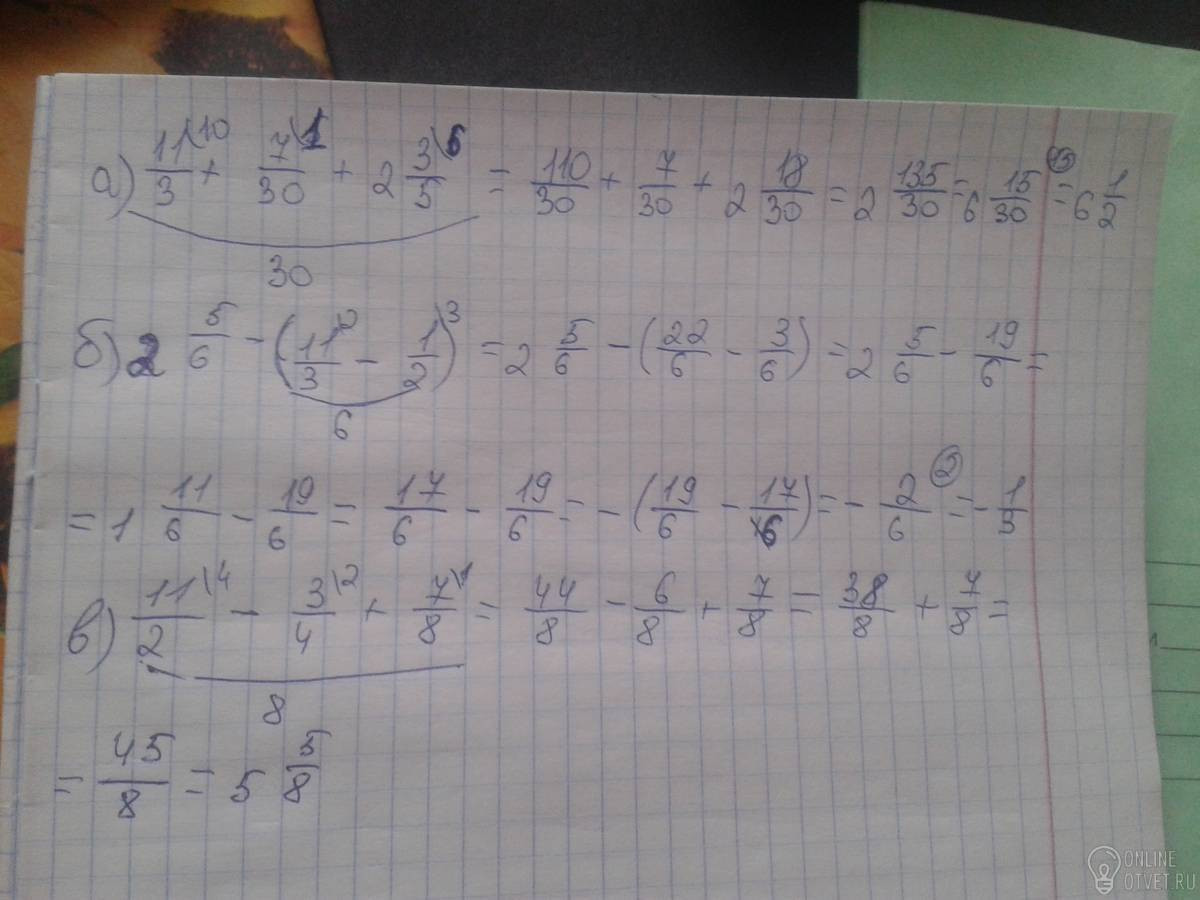 а) 11/3\10 + 7/30\1 + 2 3/5\6 = 110/30 + 7/30 + 2 18/30 = 2 135/30 = 6 15/30 (15) = 6 1/2
30
б) 2 5/6 - (11/3\2 - 1/2)\3 = 2 5/6 - (22/6 - 3/6) = 2 5/6 - 19/6 =
6
= 1 11/6 - 19/6 = 17/6 - 19/6 = - (19/6 - 17/6) = - 2/6 (2) = - 1/3
в) 11/2\4 - 3/4\2 + 7/8\1 = 44/8 - 6/8 + 7/8 = 38/8 + 7/8 =
8
= 45/8 = 5 5/8
ONLINE
OTVET.RU